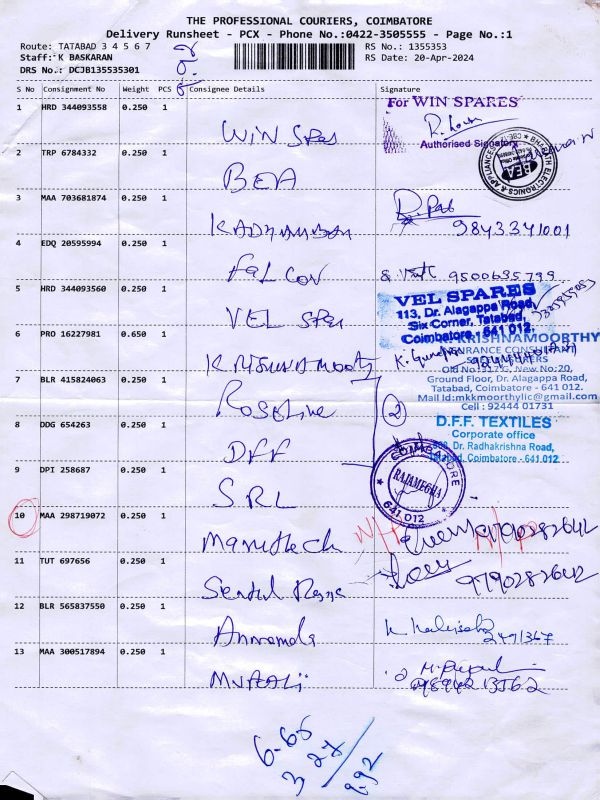 THE PROFESSIONAL COURIERS, COIMBATORE
Delivery Runsheet - PCX - Phone No.:0422-3505555 - Page No.:1
Route: TATABAD 3 4 5 6 7
RS No.: 1355353
Staff: K BASKARAN
RS Date: 20-Apr-2024
DRS No.: DCJB135535301
S No Consignment No Weight PCS Consignee Details Signature
1 HRD 344093558 0.250 1
For WIN SPARES
Authorised Signatory
WIN Spares
2 TRP 6784332 0.250 1
BHARATH ELECTRONICS & APPLIANCES
BEA
BEA
3 MAA 703681874 0.250 1
9843341001
4 EDQ 20595994 0.250 1
FALCON
9500635799
5 HRD 344093560 0.250 1
VEL Spares
VEL SPARES
113, Dr. Alagappa Road,
Six Corner, Tatabad,
Coimbatore - 641 012.
6 PRO 16227981 0.650 1
KRISHNAMOORTHY
INSURANCE
KRISHNAMOORTHY
Old No:517-G, New No:20,
7 BLR 415824063 0.250 1
Ground Floor, Dr. Alagappa Road,
Tatabad, Coimbatore - 641 012.
Mail Id:mkkmoorthylic@gmail.com
Cell : 92444 01731
Roseline
2
8 DDG 654263 0.250 1
D.F.F. TEXTILES
Corporate office
Dr. Radhakrishna Road,
Tatabad, Coimbatore - 641 012.
DFF
9 DPI 258687 0.250 1
COIMBATORE
RAJAMEGHA
641 012
SRL
10 MAA 298719072 0.250 1
9790282642
11 TUT 697656 0.250 1
9790282642
12 BLR 565837550 0.250 1
2491367
13 MAA 300517894 0.250 1
MURALI